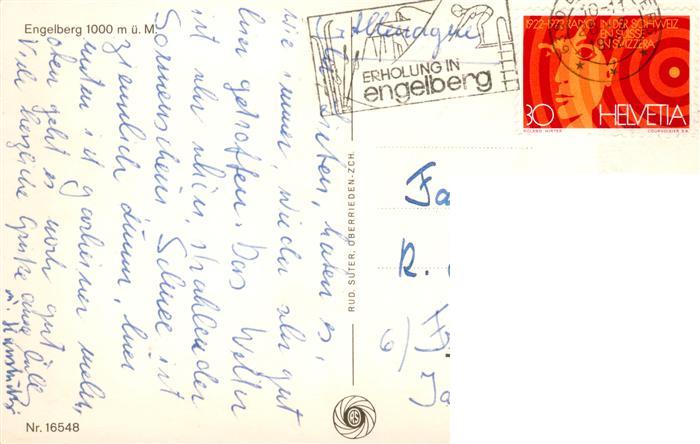 Engelberg 1000 m ü. M.
Nr. 16548
wie immer, wieder sehr gut
hier getroffen. Das Wetter
ist sehr schön, strahlender
Sonnenschein. Schnee ist
ziemlich dünn, hier
unten ist gar keiner mehr,
oben geht es noch gut
Viele herzliche Grüße
RUD. SÜTER, OBERRIEDEN-ZCH.
Allemagne
ERHOLUNG IN
engelberg
1922-1972 RADIO IN DER SCHWEIZ
EN SUISSE
IN SVIZZERA
30 HELVETIA
ROLAND HIRTER COURVOISIER S.A.
Fa
R.
6) F
Ja